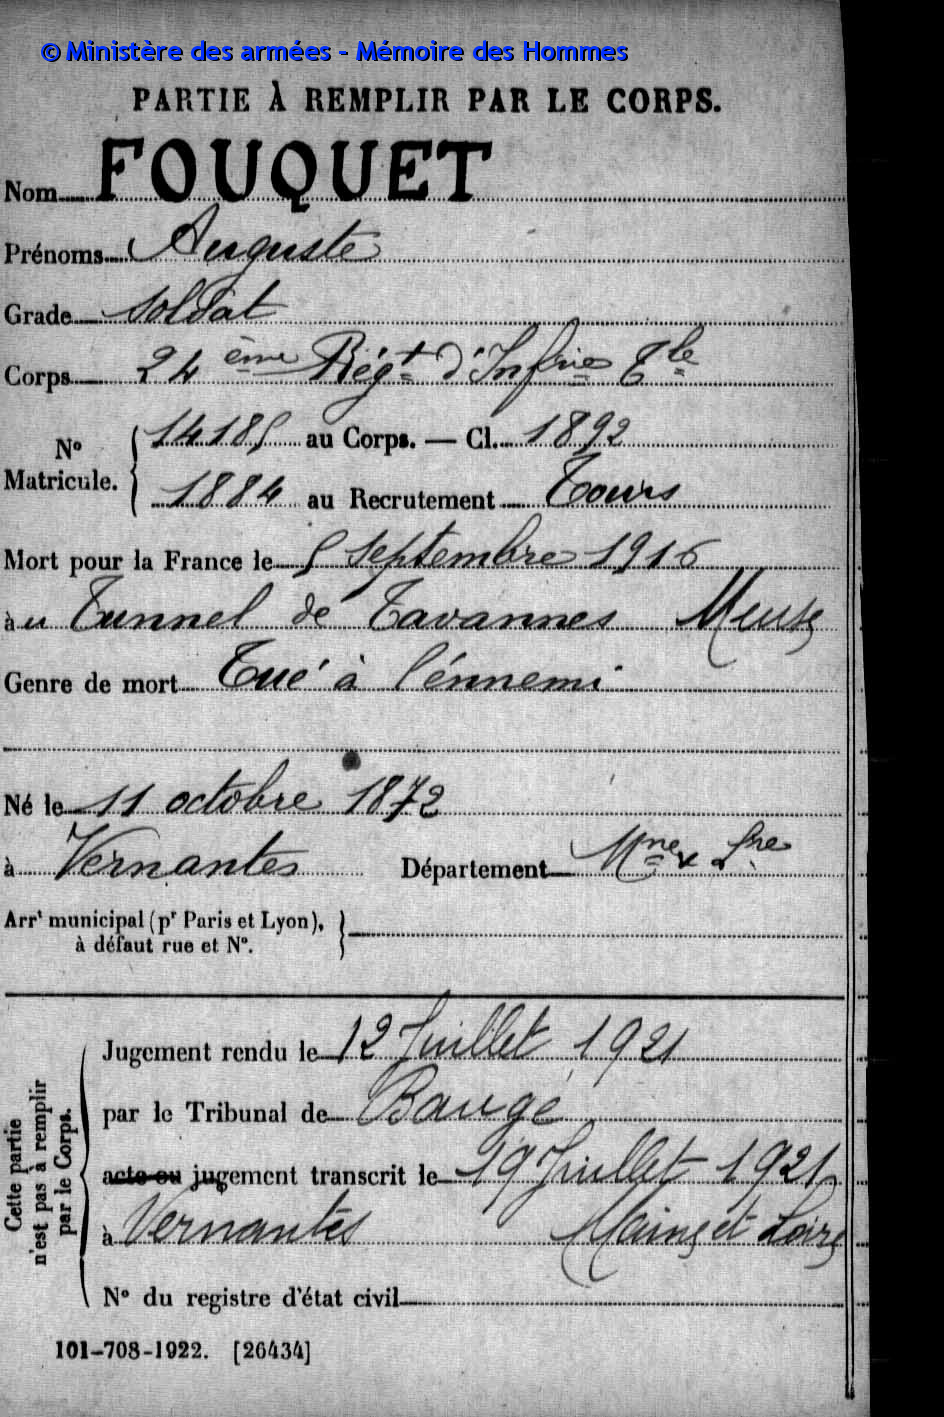 © Ministère des armées - Mémoire des Hommes
PARTIE À REMPLIR PAR LE CORPS.
Nom FOUQUET
Prénoms Auguste
Grade soldat
Corps 24 ème Régt d'Infrie Tle
No Matricule. { 14185 au Corps. — Cl. 1892
1884 au Recrutement Tours
Mort pour la France le 5 septembre 1916
àu Tunnel de Tavannes Meuse
Genre de mort Tué à l'énnemi
Né le 11 octobre 1872
à Vernantes Département Mne & Lre
Arrt municipal (pr Paris et Lyon),
à défaut rue et No. }
Cette partie
n'est pas à remplir
par le Corps.
Jugement rendu le 12 Juillet 1921
par le Tribunal de Baugé
acte ou jugement transcrit le 19 Juillet 1921
à Vernantes Maine et Loire
No du registre d'état civil
101-708-1922. [26434]